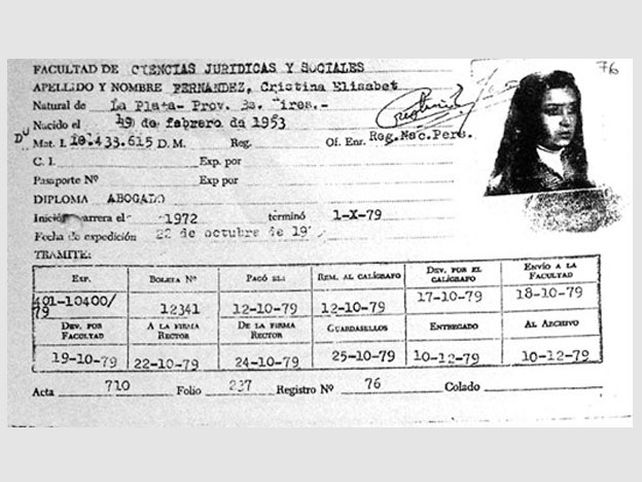 76
FACULTAD DE CIENCIAS JURIDICAS Y SOCIALES
APELLIDO Y NOMBRE FERNANDEZ, Cristina Elisabet
Natural de La Plata- Prov. Bs. Aires.-
Nacido el 19 de febrero de 1953
DU Mat. I. 10.433.615 D. M. Reg. Of. Enr. Reg.Nac.Pers.
C. I. Exp. por
Pasaporte Nº Exp por
DIPLOMA ABOGADO
Iniciò carrera el 1972 terminó 1-X-79
Fecha de expedición 22 de octubre de
TRAMITE:
EXP. BOLETA Nº PAGÓ REM. AL CALÍGRAFO DEV. POR EL CALÍGRAFO ENVÍO A LA FACULTAD
401-10400/79 12341 12-10-79 12-10-79 17-10-79 18-10-79
DEV. POR FACULTAD A LA FIRMA RECTOR DE LA FIRMA RECTOR GUARDASELLOS ENTREGADO AL ARCHIVO
19-10-79 22-10-79 24-10-79 25-10-79 10-12-79 10-12-79
Acta 710 Folio 237 Registro Nº 76 Colado